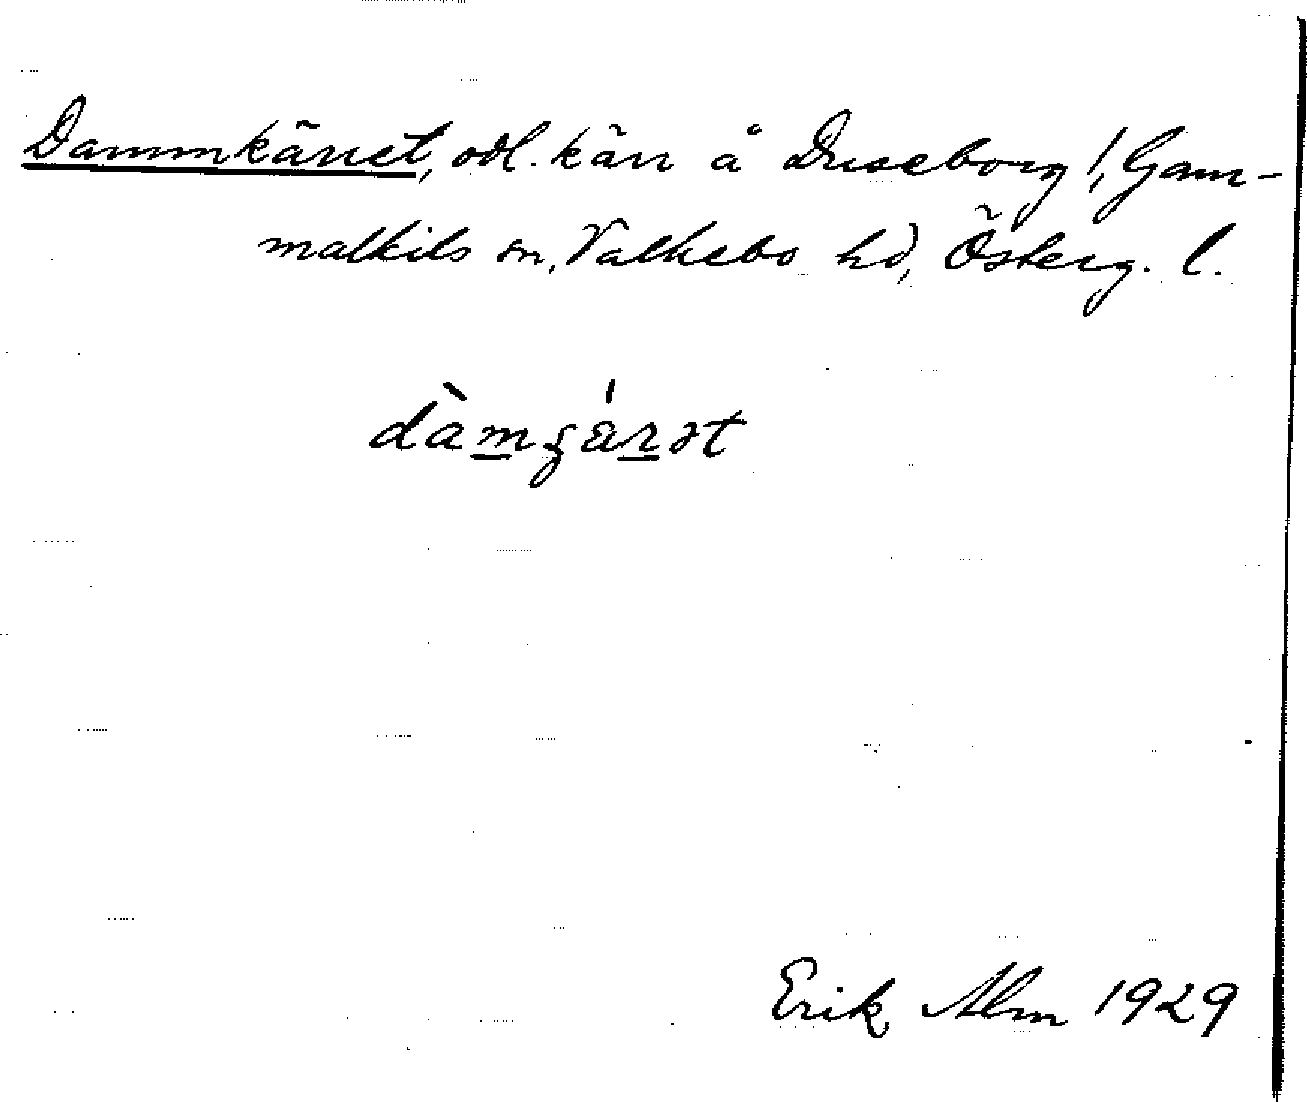 Dammkärret, odl. kärr å Duseborg !, Gam-
malkils sn, Valkebo hd, Österg. l.
dàmʒárət
Erik Alm 1929